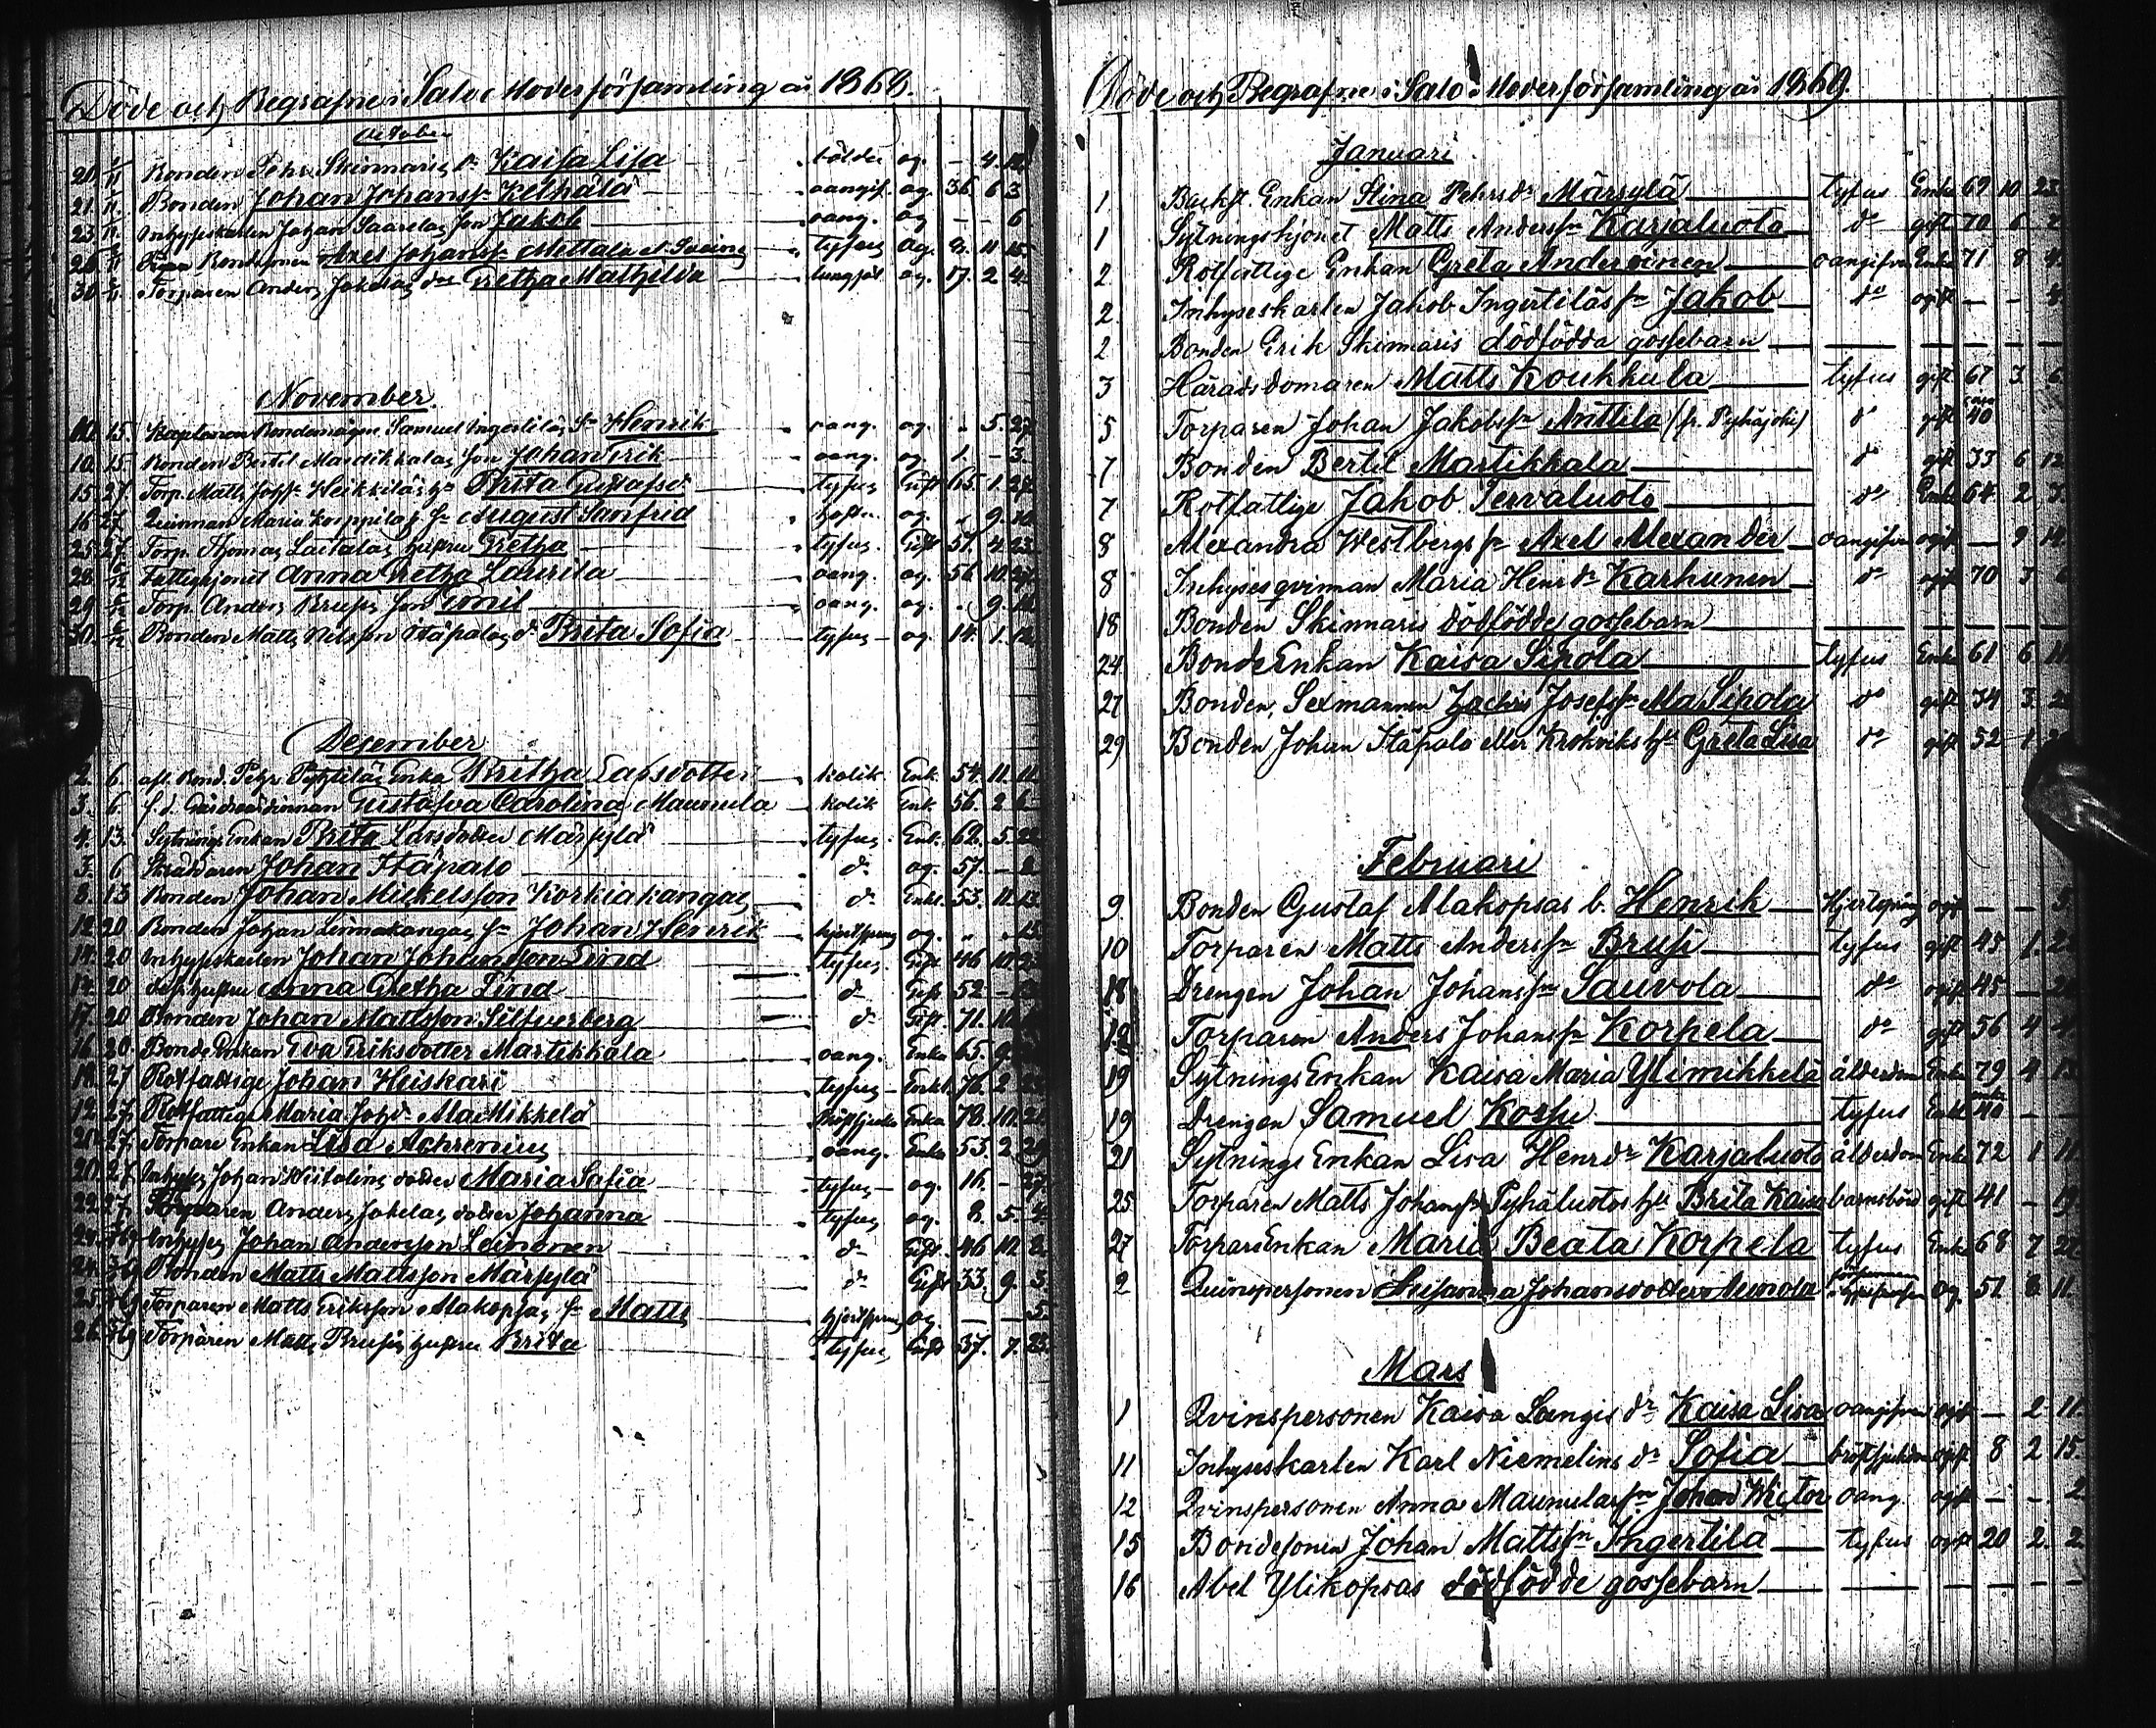 Döde och Begrafne i Salo Moderförsamling år 1868.
October
20. Bonden Pehr Skinnaris dr Kaisa Lisa bölder og. – 4.
21. Bonden Johan Johanss. Kethälä oangif. og. 36. 6 3
23. Inhyseskarlen Johan Saarelas son Jakob oang. og – – 6
26. Bondesonen Axel Johanss. Mettala tyfus og. 11. 15.
30. Torparen Anders Jokelas dr Gretha Mathilda lungsot og. 17. 2 4.
November
10. 15. Samuel Ingertiläs Sn Henrik oang. og. „ 5. 27
10. 15. Bonden Bertil Martikkalas son Johan Erik oang. og. 1. – 3.
15. 27. Torp. Matts Johss. Heikkiläs h. Brita Gustafsd. tyfus Gift 65. 1. 27
16. 27. Quinnan Maria Korppilas sn August Sanfrid og. „ 9. 10
25. 27. Torp. Thomas Laitalas hustru Gretha tyfus. Gift 51. 4. 23
28. Fattighjonet Anna Gretha Laurila oang. og. 56. 10. 27
29. Torp. Anders Brusis son Emil oang. og. „ 9.
30. Bonden Matts Nilsson Ståpalos d. Brita Sofia tyfus – og. 14. 1. 12
December
2. 6. afl. Bond. Pehr Pyhtiläs Enka Britha Larsdotter kolik. Enk. 54. 11. 11
3. 6. f.d. Gustafva Carolina Maunula kolik Enk. 56. 2 6
4. 13. Sytnings Enkan Brita Larsdotter Märsylä tyfus. Enk. 62. 5. 22
3. 6 Skräddaren Johan Ståpalo d. og. 57. – 2
8. 13 Bonden Johan Mickelsson Korkiakangas d. Enkl. 53. 11. 13
12. 20. Bonden Johan Linnakangas sn Johan Henrik hjertsprång og. „ „ 15
14. 20 Inhyseskarlen Johan Johansson Lind tyfus. Gift 46 10. 23
17. 20 dess hustru Anna Gretha Lind d. Gift 52 –
17. 20 Bonden Johan Mattsson Silfverberg d. Gift. 71. 10.
16. 20. Bonde Enkan Eva Eriksdotter Martikkala oang. Enka 65. 9.
18. 27 Rotfattige Johan Heiskari tyfus – Enkl. 76. 2
19. 27. Rotfattige Maria Johsd. Ala Mikkelä bröstsjuka Enka 78. 10. 21
20. 27. Torpare Enkan Lisa Achrenius oang. Enka 53. 2 29
20. 27. Inhyses Johan Wistolins dotter Maria Safia tyfus – og. 16. – 27
22. 27. Torparen Anders Jokelas dotter Johanna tyfus og. 8. 5. 4.
24. Inhyses Johan Andersson Leinonen d. Gift. 46 10. 2.
24. Bonden Matts Mattsson Märsylä d. Gift 33. 9. 3.
25. Torparen Matts Eriksson Alakopsas sn Matts hjertsprång og. – – 5.
26. Torparen Matts Brusis hustru Brita tyfus Gift 37. 7. 23.
Döde och Begrafne i Salo Moderförsamling år 1869.
Januari
1 Backst. Enkan Stina Pehrsdr Märsylä tyfus Enka 69 10 23
1 Sytningshjonet Matts Anderssn Karjaluoto do gift 70 6 2
2 Rotfattige Enkan Greta Andersinen oangifven Enka 71 8 4.
2. Inhyseskarlen Jakob Ingertiläs sn Jakob do ogift – –
2 Bonden Erik Skinnaris dödfödda gossebarn – – – – –
3 Häradsdomaren Matts Koukkula tyfus gift 67 3. 6
5 Torparen Johan Jakobssn Anttila (fr. Pyhäjoki) do gift 40
7 Bonden Bertil Martikkala do gift 33 6 12
7 Rotfattige Jakob Tervaluoto do Enkl 64. 2 3.
8 Alexandra Westbergs sn Axel Alexander oangifven ogift – 9 14
8 Inhyses qvinnan Maria Henrdr Karhunen do ogift 70 3 6
18 Bonden Skinnaris dödfödde gossebarn – – – – –
24. BondeEnkan Kaisa Sipola tyfus Enka 61 6 11
27 Bonden, Sexmannen Zachris Josefssn Ala Sipola do gift 34 3. 2
29 Bonden Johan Ståpalo eller Krokviks hu Greta Lisa do gift 52 1
Februari
9. Bonden Gustaf Alakopsas b. Henrik Hjertsprång ogift – – 5.
10 Torparen Matts Anderssn Brusi tyfus gift 45 1. 2
18 Drengen Johan Johanssn Sauvola do ogift 45 – 2
19 Torparen Anders Johanssn Korpela do gift 56 4 4
19 SytningsEnkan Kaisa Maria Ylimikkelä ålderdom Enka 79 4 13
19 Drengen Samuel Koshu tyfus Enkl 40 – –
21 Sytnings Enkan Lisa Henrdr Karjaluoto ålderdom Enka 72 1 11
25 Torparen Matts Johanssn Pyhäluotos hu Brita Kaisa barnsbörd gift 41 – 19
27 TorpareEnkan Maria Beata Korpela tyfus Enka 68 7 22
2 Quinspersonen Susanna Johansdotter Aunola og. 51 8 11
Mars
1 Qvinspersonen Kaisa Langis dr Kaisa Lisa oangifven ogift – 2 11.
11 Inhyseskarlen Karl Niemelins dr Sofia bröstsjukdom ogift 8 2 15.
12 Qvinspersonen Anna Maunulas sn Johan Wictor oang. ogift – – 2
15 Bondesonen Johan Mattssn Ingertilä tyfus ogift 20 2. 2.
16 Abel Ylikopsas dödfödde gossebarn – – – – –